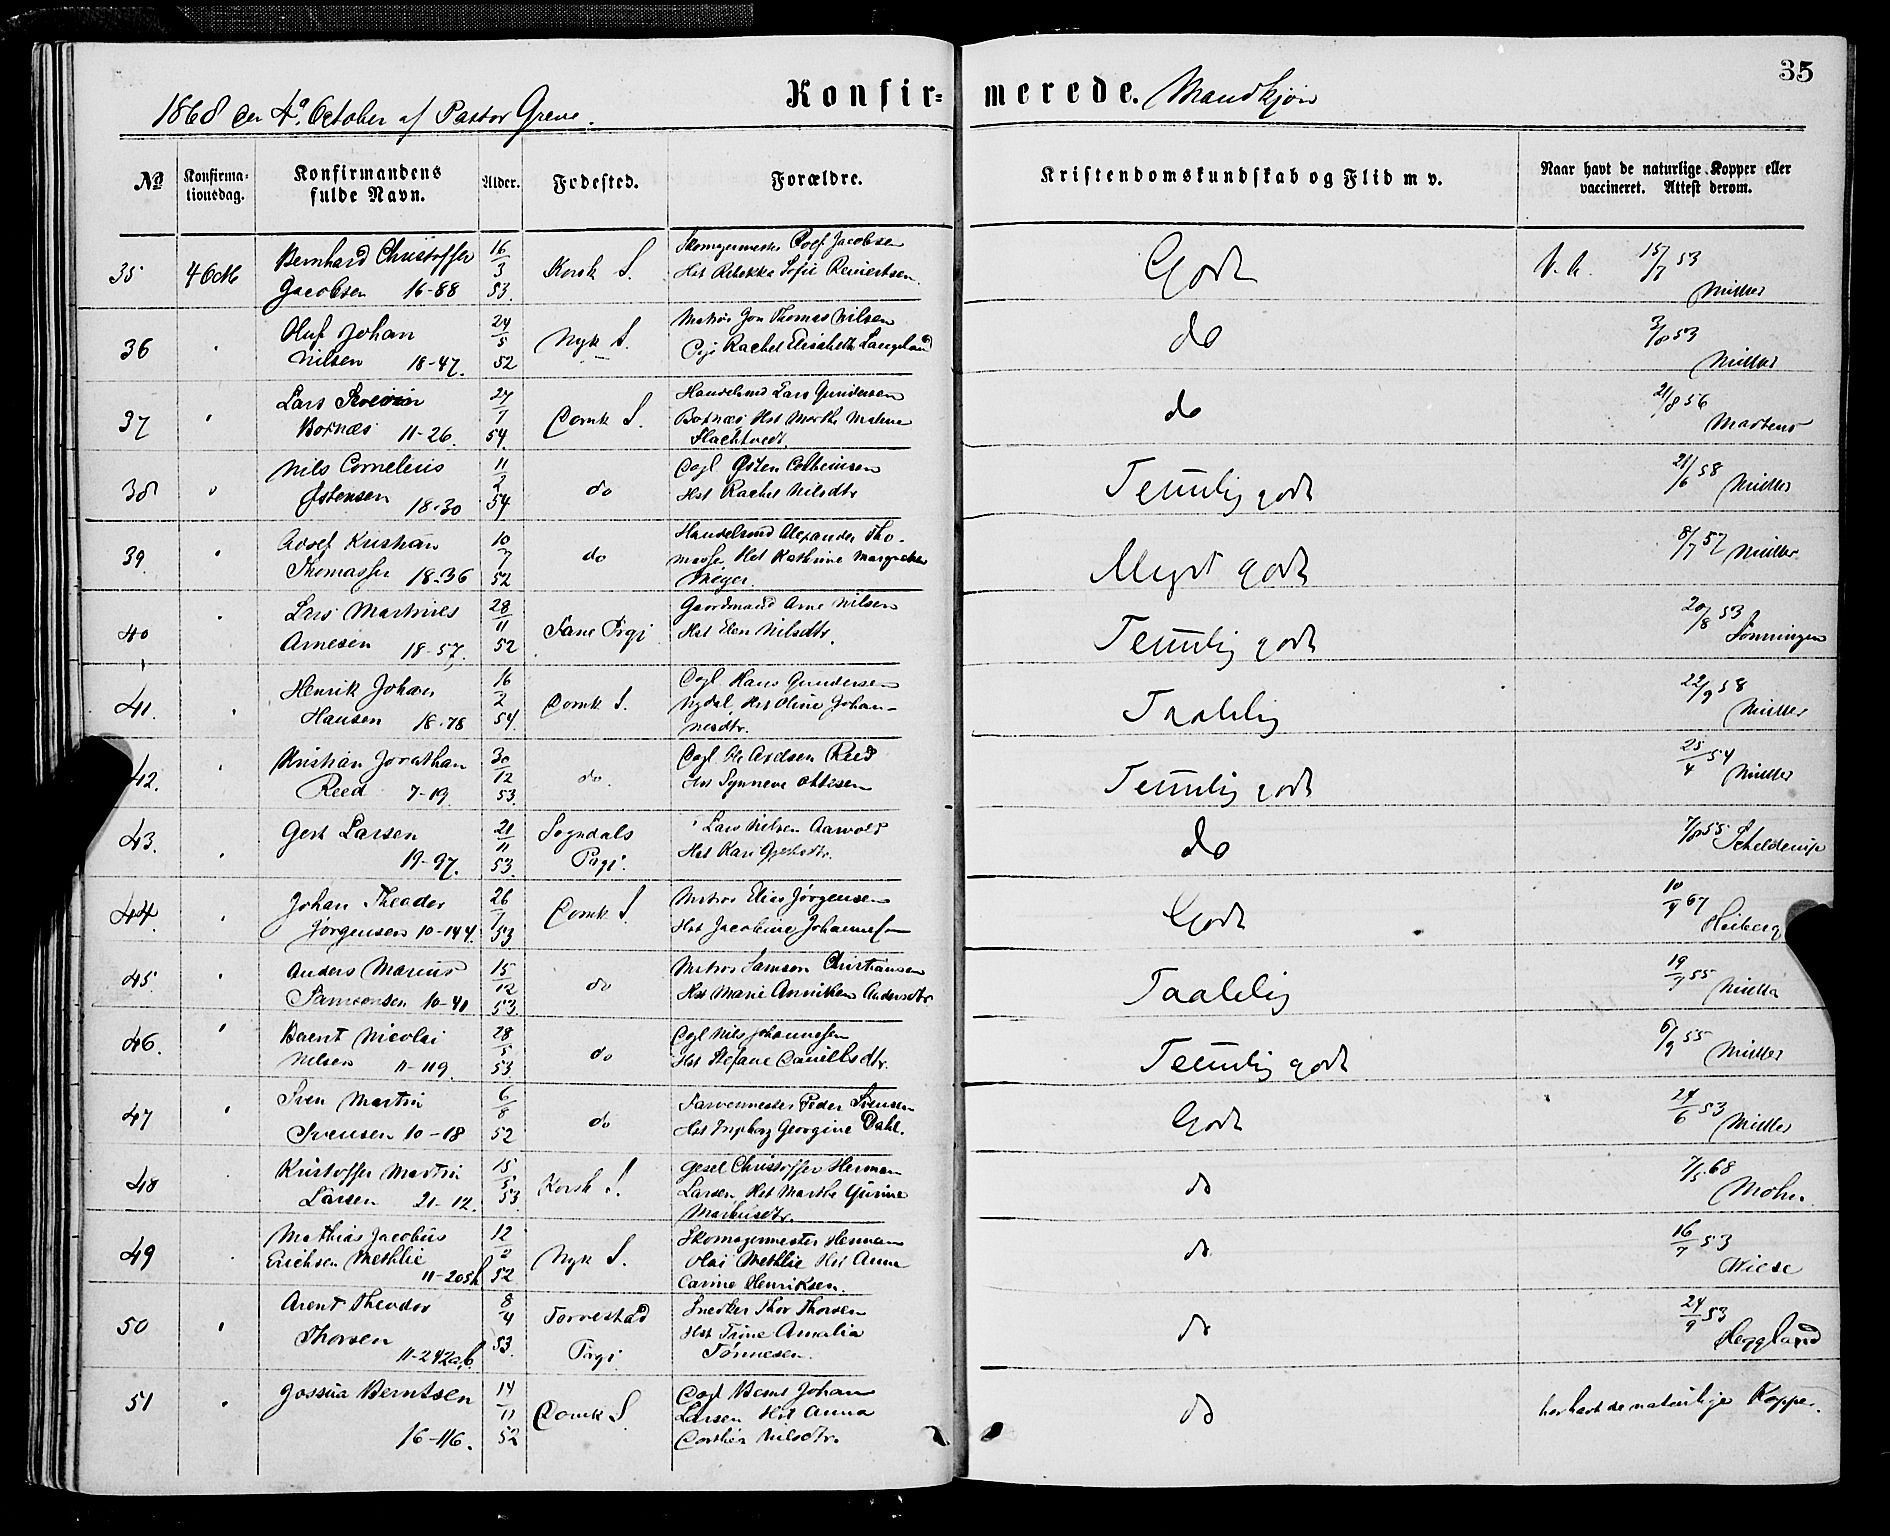 35
Konfir= merede. Mandkjøn
1868 den 4de October af Pastor Greve.
No Konfirma=tionsdag. Konfirmandens fulde Navn. Alder. Fødested. Forældre. Kristendomskundskab og Flid m v. Naar havt de naturlige Kopper eller vaccineret. Attest derom.
35 4 Octb Bernhard Christoffer 16/3 53. Korsk S. Skomagermester Jacobsen God V. A. 15/7 53
Jacobsen 16-88 Hst Rebekka Sofie Reinertsen Müller
36 " Oluf Johan 24/5 52 Nyk S. Matros Jon Thomas Nilsen do 3/8 53
Nilsen 18-47. Pige Rachel Elisabeth Langeland Müller
37 " Lars Severin 27/7 54. Domk S. Handelsmd Lars Gundersen do 21/8 56
Bornæs 11-26. Bornæs Hst Marthe Malene Martens
Slachtvedt.
38 " Nils Cornelius 11/2 54 do Dagl Østen Colbeinsen Temlig godt 21/6 58 Müller
Østensen 18-30 Hst Rachel Nilsdtr
39. " Adolf Kristian 10/7 52 do Handelsmd Alexander Tho- Meget godt 8/7 57 Müller
Thomassen 18-36 massen Hst Kathrine Margrethe
Meyer.
40 Lars Martinus 28/11 52 Fane Prgj Gaardmand Arne Nilsen Temlig godt 20/8 53
Arnesen 18-57. Hst Elen Nilsdtr. Lønningen
41. " Henrik Johan 16/2 54. Domk S. Dagl Hans Gundersen Taalelig 22/9 58
Hansen 18-78 Nydal Hst Oline Johan- Müller
nesdtr.
42. " Kristian Jonathan 30/12 53. do. Dagl Ole Reed Temlig godt 25/4 54
Reed 7-19. Hst Synneve Ottisen Müller
43. " Gert Larsen 21/11 53. Sogndals Lars Nilsen Aarvold do 7/8 55 Schelderup
19-97. Prgj. Hst Kari
44. " Johan Theodor 26/1 53 Domk S. Matros Elias Jørgensen Godt 10/9 67
Jørgensen 10-144. Hst Jacobine Johannesen Heiberg
45. " Anders Marius 15/12 53. do Matros Samson Christiansen Taalelig 19/9 55 Müller
Samsonsen 10-41 Hst Marie Anniken Andersdtr
46. " Berent Nicolai 28/5 53 do Dagl Nils Johannesen Temlig godt 6/9 55
Nilsen 11-119. Hst Stefane Danielsdtr. Müller
47 " Sven Martin 6/8 52 do Farvermester Peder Svensen Godt 24/6 53
Svensen 10-18 Hst Ingborg Georgine Dahl. Müller
48 Kristoffer Martin 15/5 53 Korsk S. Gesel Christoffer Herman do 7/5 68
Larsen 21-12. Larsen Hst Marthe Gurine Mohn
Markusdtr.
49 Mathias Jacobus 12/2 52 Nyk S. Skomagermester Herman do 16/7 53
Erichsen Methlie Olai Methlie Hst Anne Wiese
11-205 Carine Henriksen.
50 " Arent Theodor 8/4 53. Torvestad Snedker Thor Thorsen do 24/9 53
Thorsen Prgj Hst Trine Amalia Heggland
11-242a,b. Tønnesen.
51 " Jossua Berntsen 14/11 52 Domk S. Dagl Bernt Johan do har havt de naturlige Kopper.
16-116. Larsen Hst Anna
Dorthea Nilsdtr.